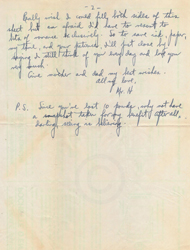 - 2 -
Really wish I could fill both sides of this
sheet but am afraid I'd have to resort to
lots of romance exclusively. So to save ink, paper,
my time, and your patience, I'll just close by
saying I still think of you every day and love you
very much.
Give mother and dad my best wishes.
All my love,
P.S. Since you've lost 10 pounds, why not have
a snapshot taken for my benefit after all,
darling, seeing is believing.